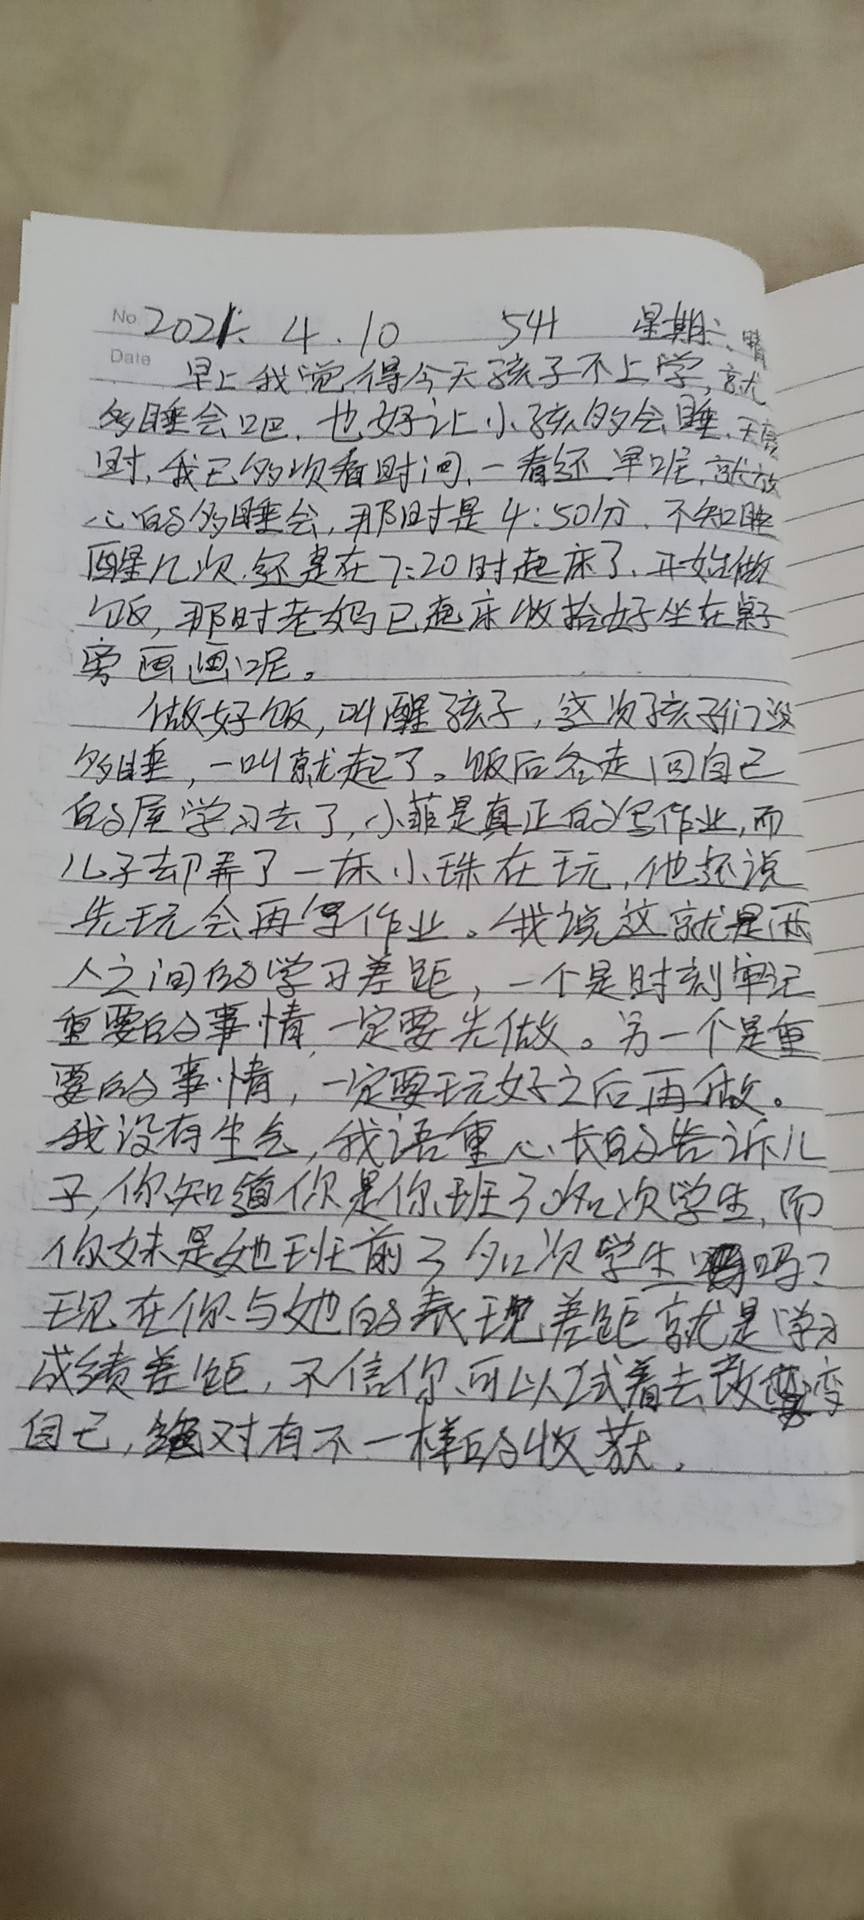 No 2021. 4.10 541 星期六、晴
Date 早上我觉得今天孩子不上学,就
多睡会吧,也好让小孩多会睡,天亮
时,我已多次看时间,一看还早呢,就放
心的多睡会,那时是4:50分,不知睡
醒几次,还是在7:20时起床了,开始做
饭,那时老妈已起床收拾好坐在桌子
旁画画呢。
做好饭,叫醒孩子,这次孩子们没
多睡,一叫就起了。饭后各走回自己
的屋学习去了,小菲是真正的写作业,而
儿子却弄了一床小珠在玩,他还说
先玩会再写作业。我说这就是两
人之间的学习差距,一个是时刻牢记
重要的事情,一定要先做。另一个是重
要的事情,一定要玩好之后再做。
我没有生气,我语重心长的告诉儿
子,你知道你是你班30名次学生,而
你妹是她班前3名次学生吗?
现在你与她的表现差距就是学习
成绩差距,不信你可以试着去改变
自己,绝对有不一样的收获。